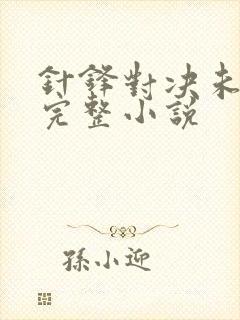 針鋒對决未
完整小説
孫小迎